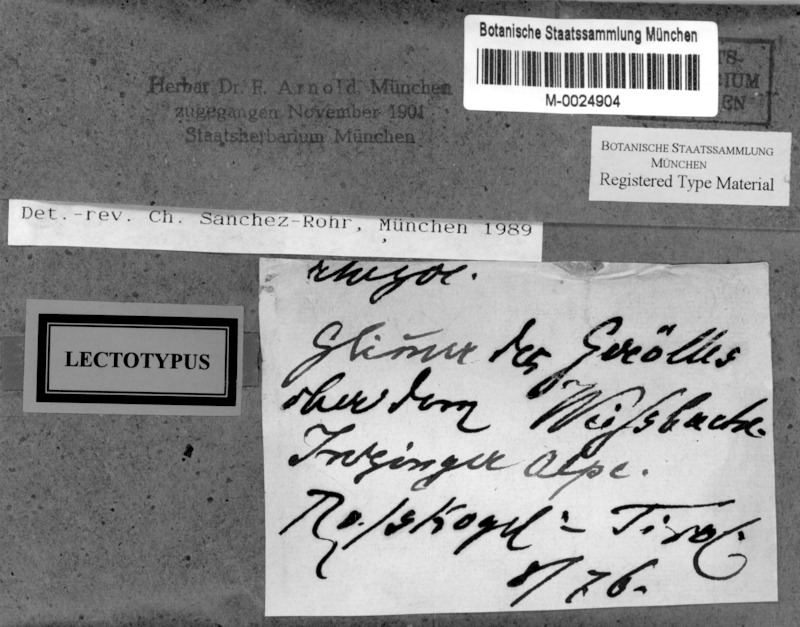 Botanische Staatssammlung München
M-0024904
Herbar Dr. F. Arnold München
zugegangen November 1901
Staatsherbarium München
BOTANISCHE STAATSSAMMLUNG
MÜNCHEN
Registered Type Material
Det.-rev. Ch. Sanchez-Rohr, München 1989
LECTOTYPUS
Glimmer des Gerölles
ober dem Weissbache
Inzinger Alpe.
Rosskogel - Tirol
8/76.